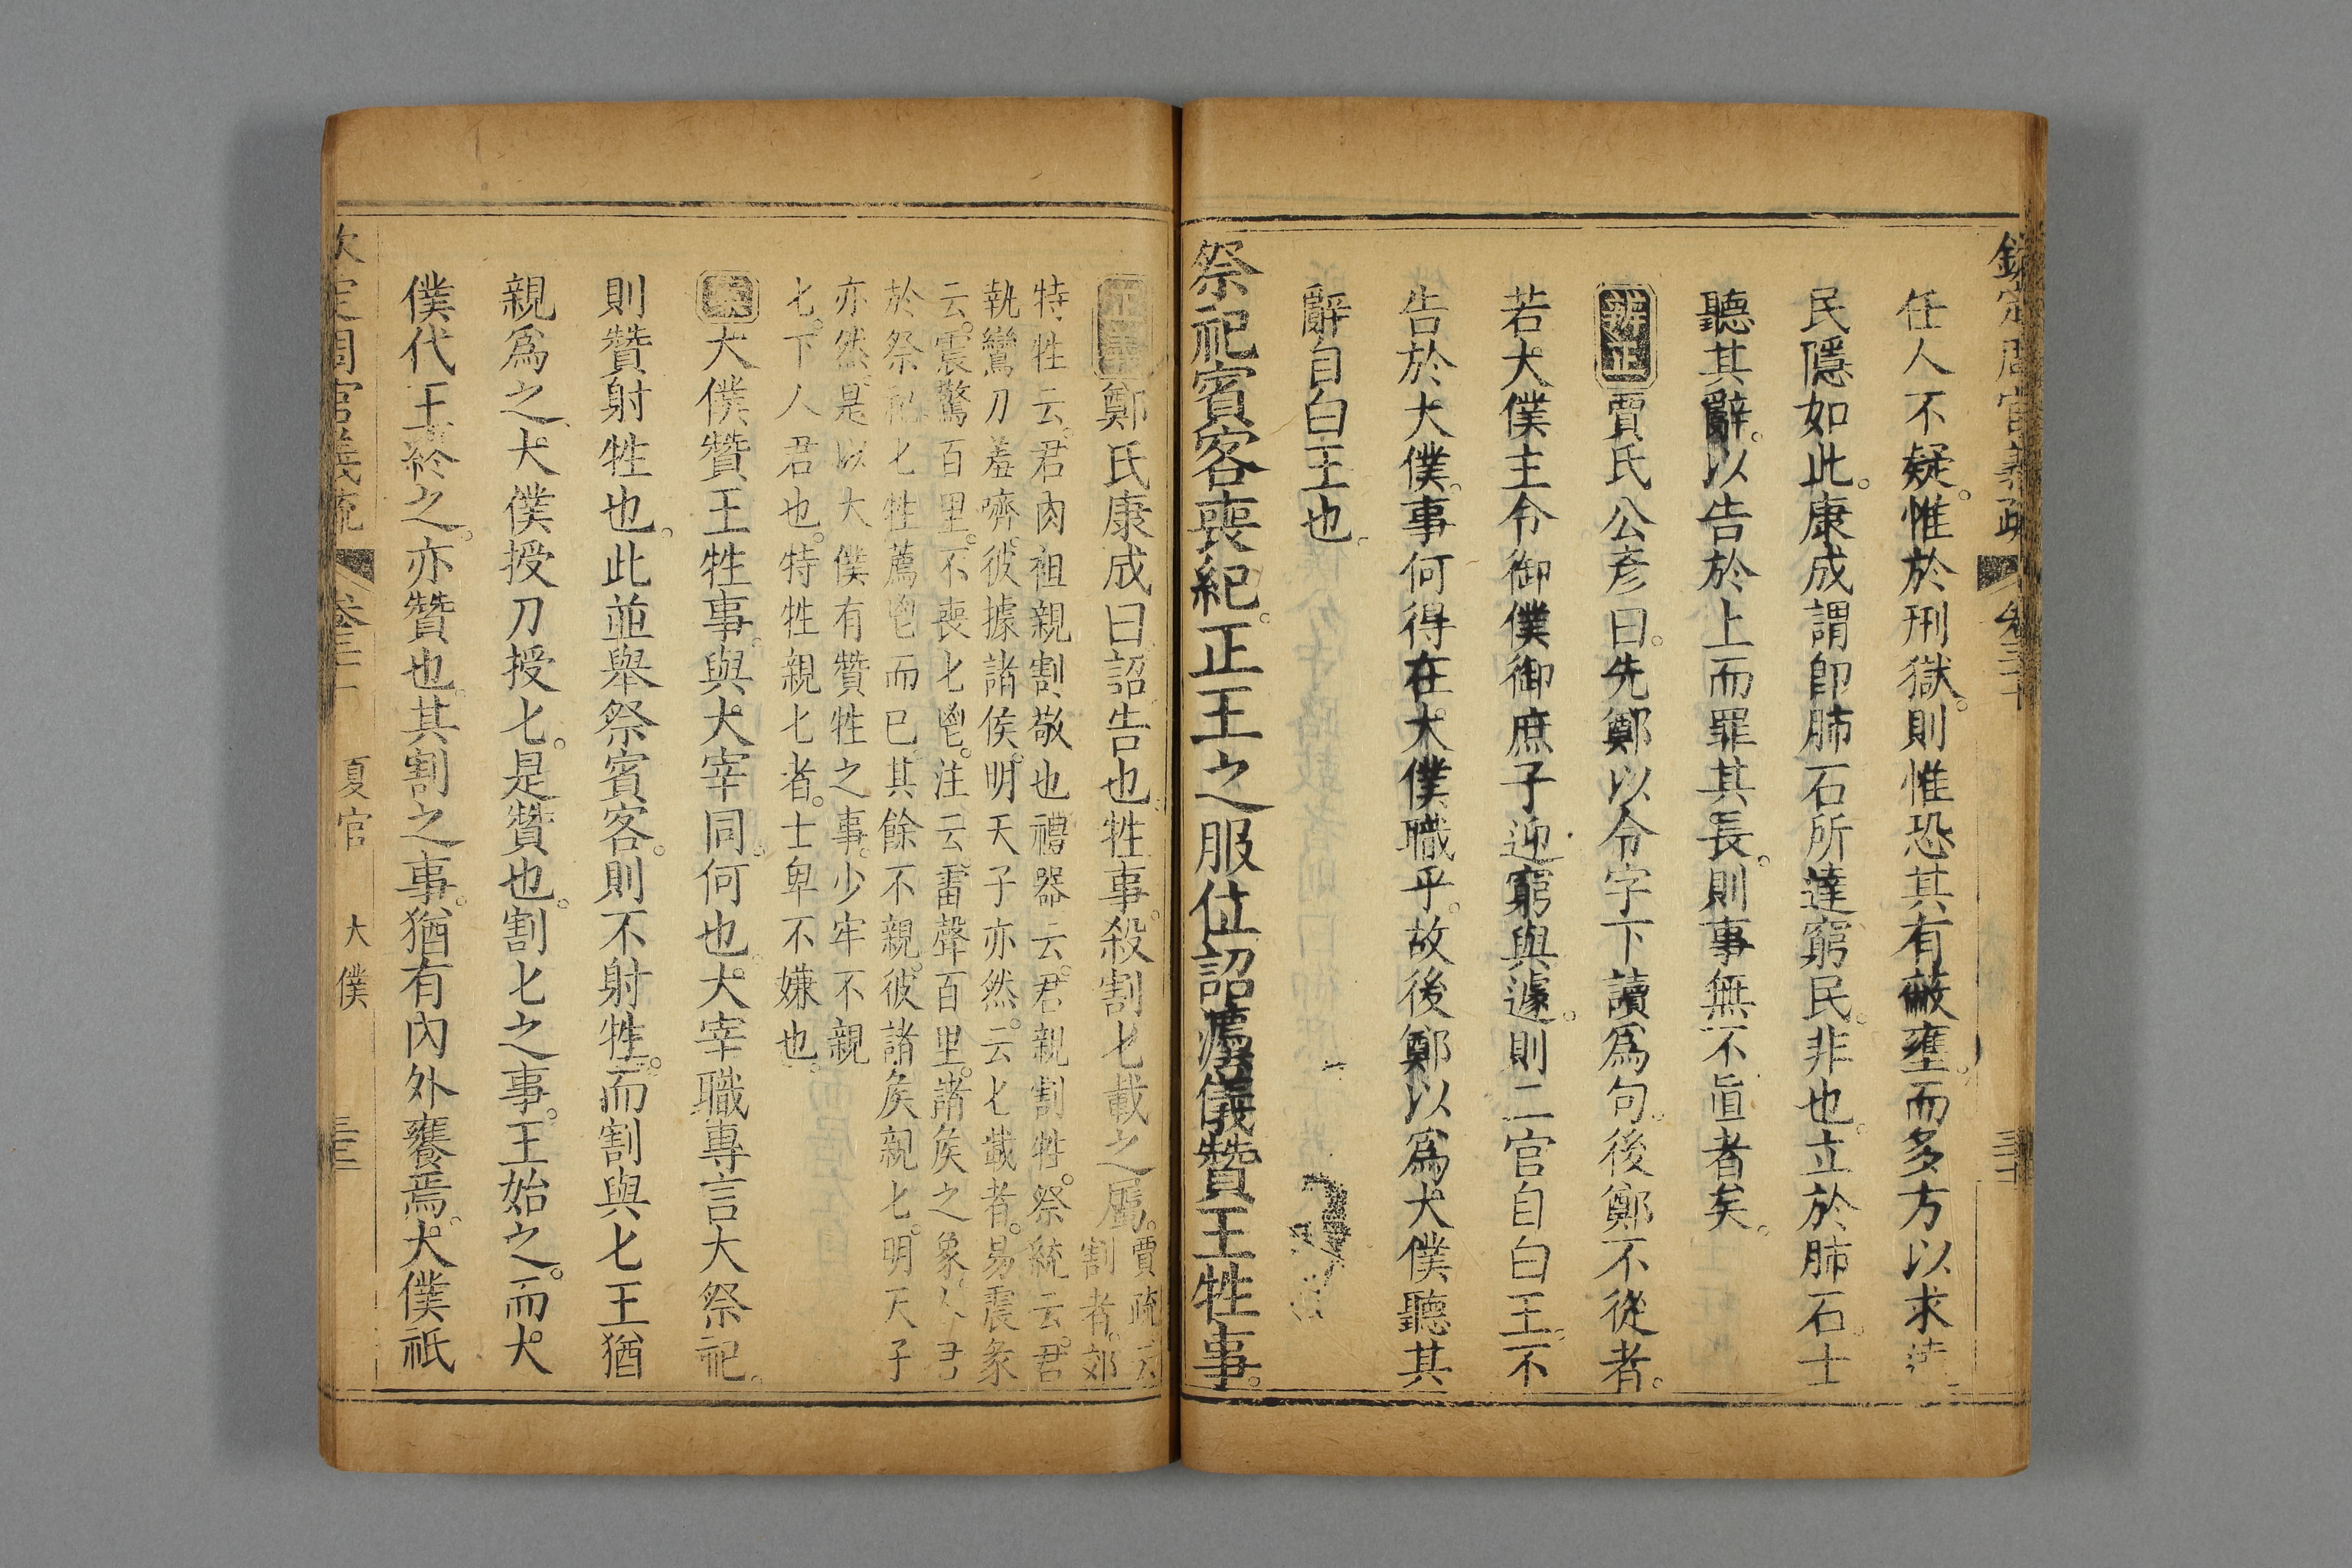 欽定周官義疏 卷三十
任人不疑惟於刑獄則惟恐其有蔽壅而多方以求達
民隱如此康成謂卽肺石所達窮民非也立於肺石士
聽其辭以告於上而罪其長則事無不直者矣
辨正賈氏公彥曰先鄭以令字下讀爲句後鄭不從者
若大僕主令御僕御庶子迎窮與遽則二官自白王不
告於大僕事何得在大僕職乎故後鄭以爲大僕聽其
辭自白王也
祭祀賓客喪紀正王之服位詔灋儀贊王牲事
正義鄭氏康成曰詔告也牲事殺割匕載之屬賈疏云割者郊
特牲云君肉袒親割敬也禮器云君親割牲祭統云君
執鸞刀羞嚌彼據諸侯明天子亦然云匕載者易震彖
云震驚百里不喪匕鬯注云雷聲百里諸侯之象人君
於祭祀匕牲薦鬯而已其餘不親彼諸侯親匕明天子
亦然是以大僕有贊牲之事少牢不親
匕下人君也特牲親匕者士卑不嫌也
案大僕贊王牲事與大宰同何也大宰職專言大祭祀
則贊射牲也此並舉祭賓客則不射牲而割與匕王猶
親爲之大僕授刀授匕是贊也割匕之事王始之而大
僕代王終之亦贊也其割之事猶有內外饔焉大僕祇
欽定周官義疏 卷三十一 夏官 大僕